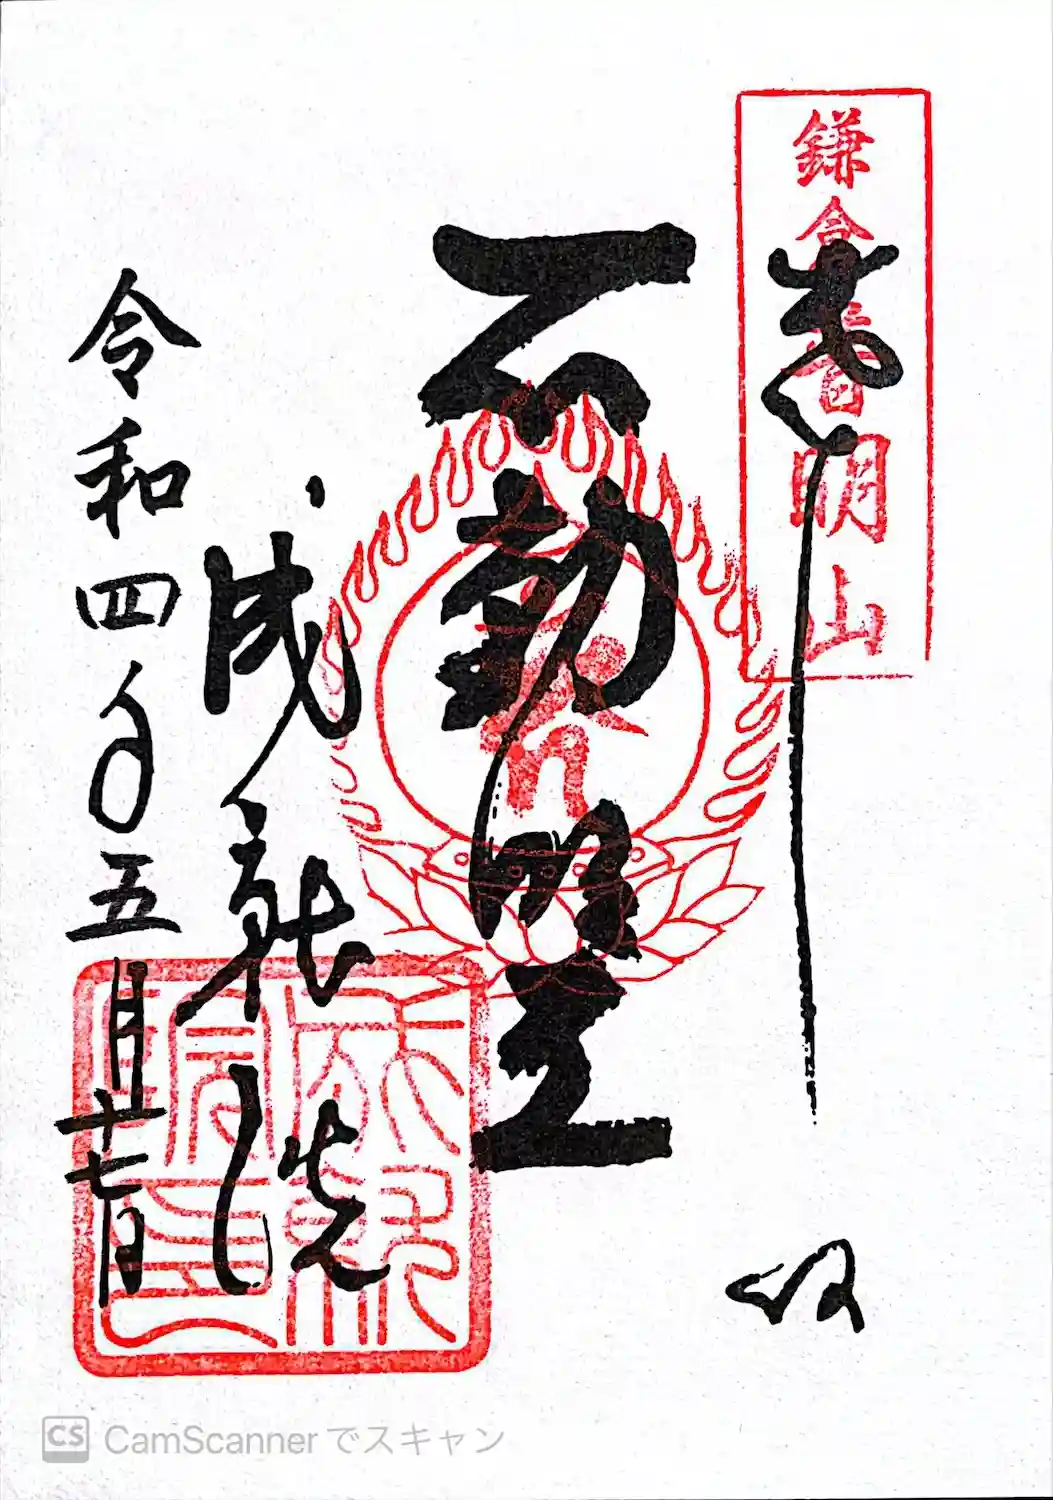 奉拝
鎌倉普明山
不動明王
成就院
令和四年五月十七日
CS CamScannerでスキャン